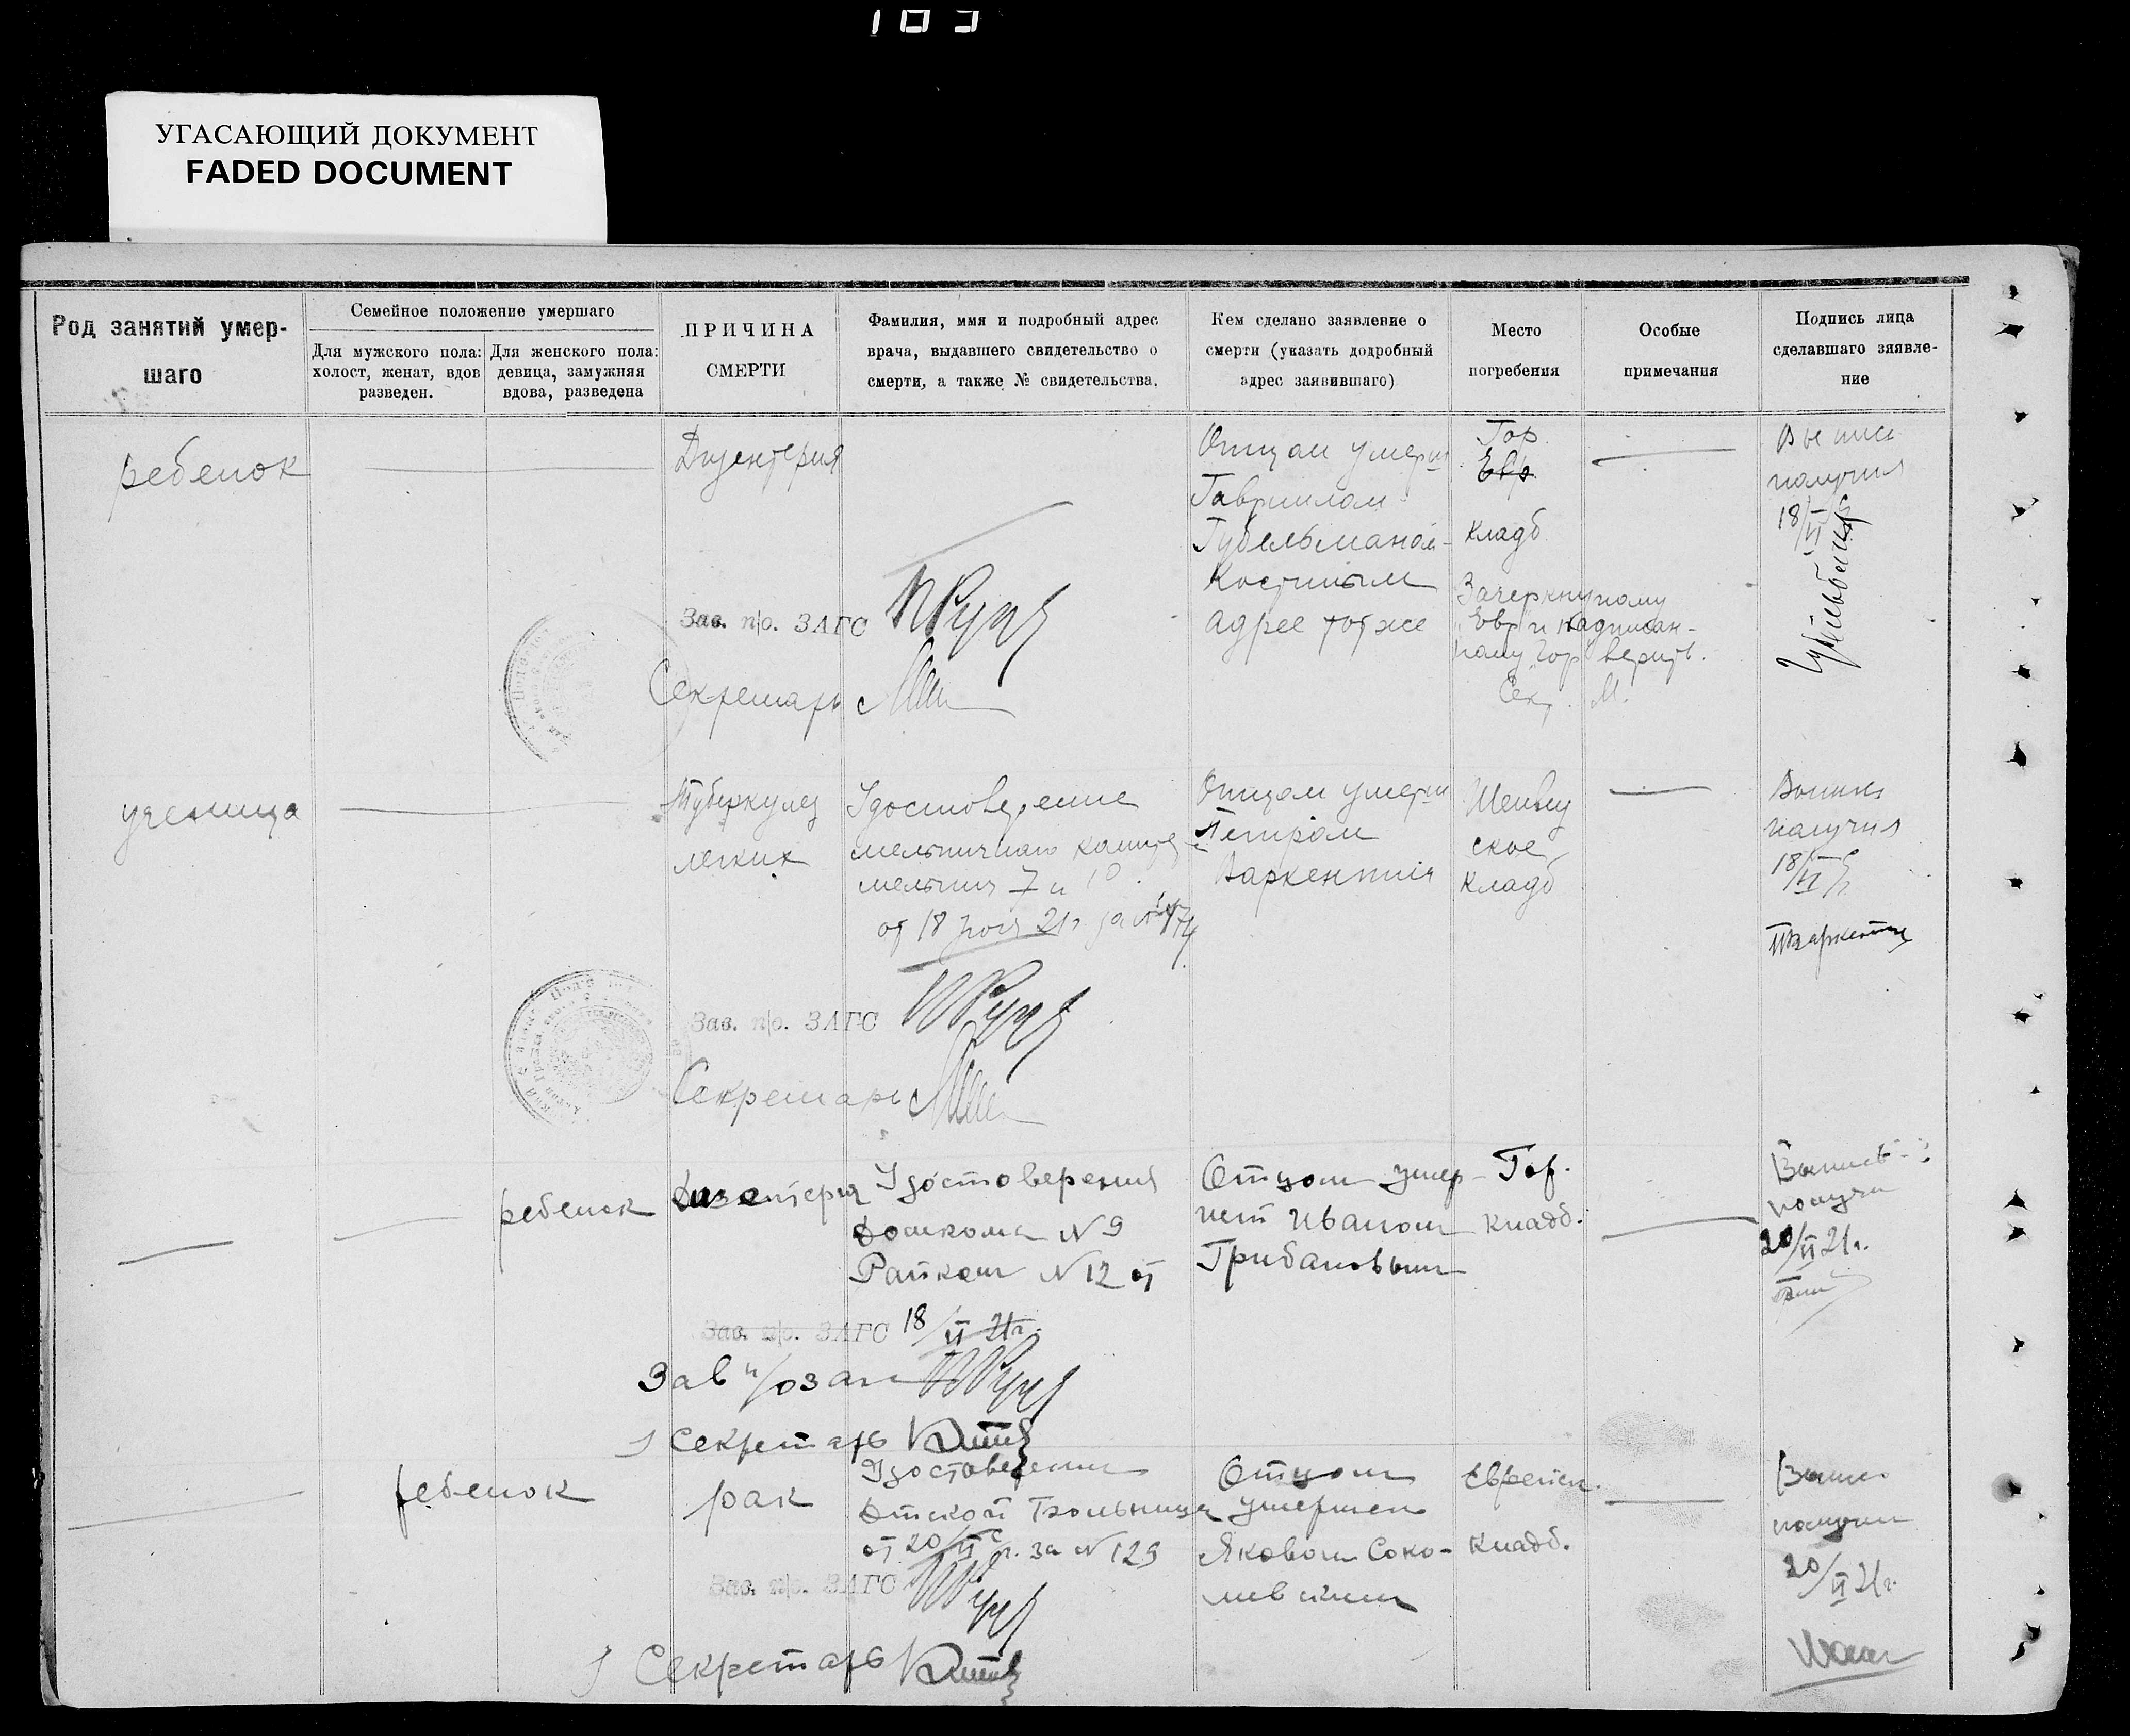 103
УГАСАЮЩИЙ ДОКУМЕНТ
FADED DOCUMENT
Род занятий умер-
шаго
Семейное положение умершаго
Для мужского пола:
холост, женат, вдов
разведен.
Для женского пола:
девица, замужняя
вдова, разведена
ПРИЧИНА
СМЕРТИ
Фамилия, имя и подробный адрес
врача, выдавшего свидетельство о
смерти, а также № свидетельства.
Кем сделано заявление о
смерти (указать додробный
адрес заявившаго)
Место
погребения
Особые
примечания
Подпись лица
сделавшаго заявле-
ние
ребенок
Дизентерия
Отцом умерш
Гавриилом
Губельманом-
Костиным
адрес тот же
Гор.
Евр.
кладб.
Зачеркнутому
"Евр" и надписан-
ному "Гор" верить.
Сек. М.
Выпись
получил
18/VI
Зав. п/о. ЗАГС
Секретарь
ученица
Туберкулез
легких
Удостоверение
мельничного
мельниц 7 и 10
от 18 21г за №
Отцом умерш
Петром
Варкентин
кладб
ское
Выпись
получил
18/VI
Зав. п/о. ЗАГС
Секретарь
ребенок
Дизентерия
Удостоверения
Домкома N 9
Райком N 12 от
18/VI 21г.
Отцом умер-
шей Иваном
Грибановым
Гор.
кладб.
Выпись
получил
20/VI 21г.
Зав. п/о. ЗАГС
Зав п/о загс
Секретарь
ребенок
рак
Удостоверение
Детской Больницы
от 20/VI с/г. за N 129
Отцом
умершей
Яковом Соко-
ловским
Еврейск.
кладб.
Выпись
получил
20/VI 21г.
Зав. п/о. ЗАГС
Секретарь